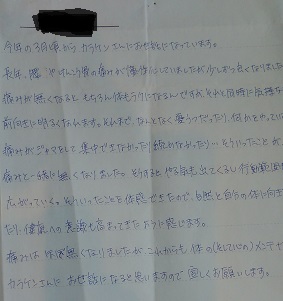 今年の3月頃から カラケンさんにお世話になっています。
長年、腰、やけんこう骨の痛みが慢性化していましたが少しずつ良くなりました
痛みが無くなると もちろん体もラクになるんですが、それと同時に気持な
前向きに明るくなれます。それまで、なんとなく憂うつだったり、何かをやってい
痛みがジャマをして集中できなかったり続かなかったり…そういったことが、
痛みと一緒に無くなりました。そうするとやる気も出てくるし行動範囲
広がっていく。そういったことを体感できたので、自然と自分の体に向き
たり、健康への意識も高まってきたように感じます。
痛みは ほぼ無くなりましたが、これからも 体の(そして心の)メンテナ
カラケンさんに お世話になると思いますので 宜しくお願いします。